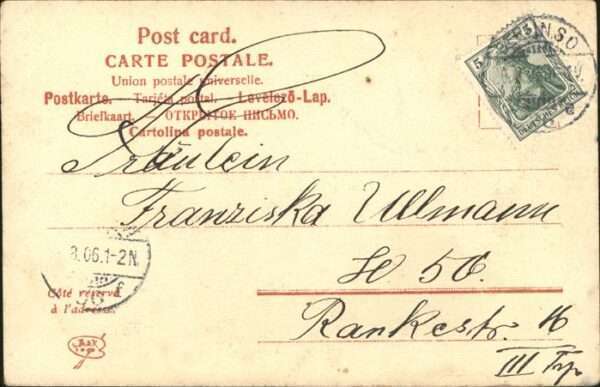 Post card.
CARTE POSTALE.
Union postale universelle.
Postkarte. Tarjeta postal. Levelező-Lap.
Briefkaart. ОТКРЫТОЕ ПИСЬМО.
Cartolina postale.
5
Fräulein
Franziska Ullmann
W 50.
Rankestr. 16
III Trp
.06.1-2N.
Côté réservé
à l'adresse.